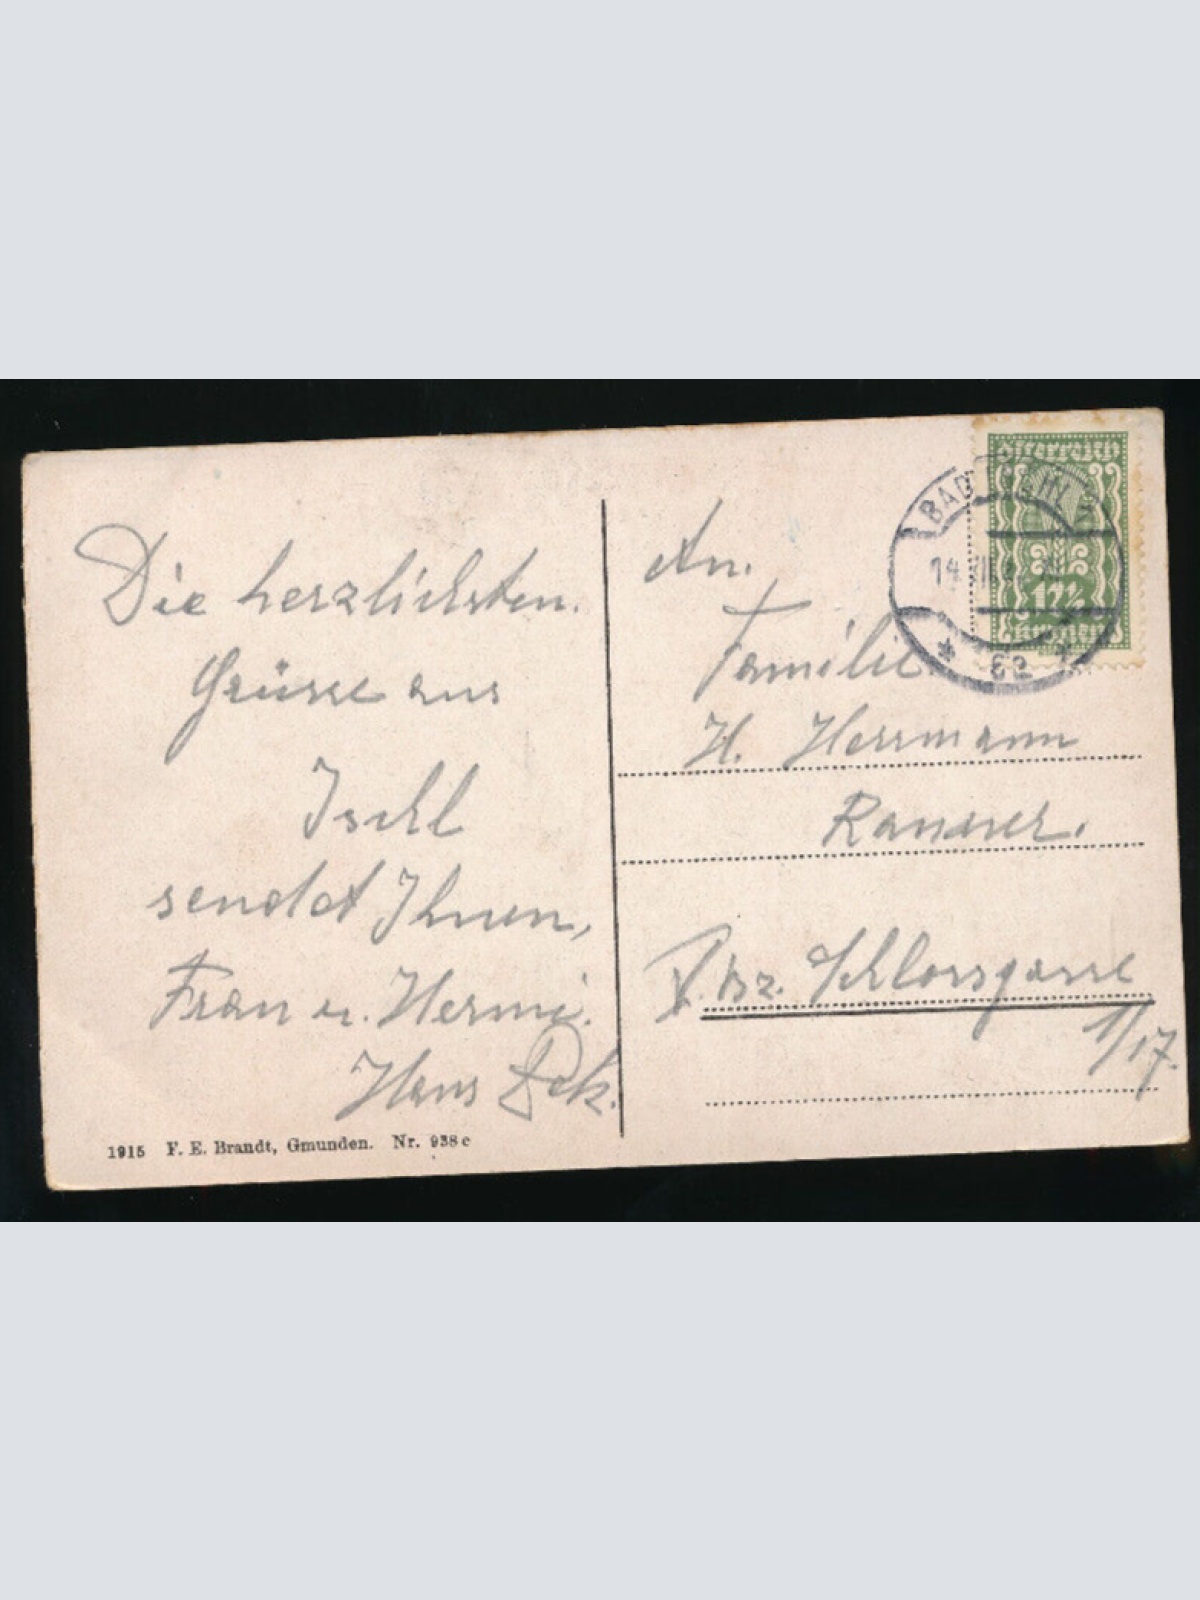 Die herzlichsten.
Grüsse aus
Ischl
sendet Ihnen,
Frau u. Hermi.
Hans
1915 F. E. Brandt, Gmunden. Nr. 938 c
An.
Familie.
H. Herrmann
V. Bz. Schlossgasse
1/17.
Österreich
12½
Kronen
BAD
14